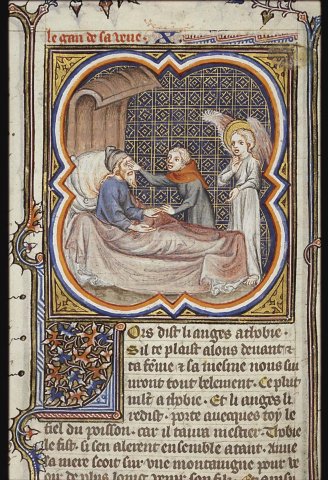 le gan de sa veue · X ·
Lors dist li anges a thobie ·
Sil te plaist alons devant et
ta feme et ta mesme nous sui
uront tout belement · Ce plut
mlt a thobie · Et li anges li
redist · porte auecques toy le
fiel du poisson · car il taura mestier · Thobie
le fist · si sen alerent ensemble atant · Anne
la mere seoit sur une montaingne pour ve
oir de plus loing venir son fil ·